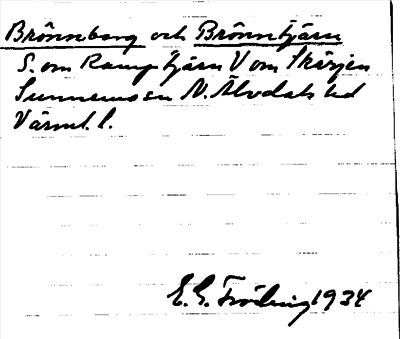 Brönnberg och Brönntjärn
S. om Ramptjärn V om Skårjen
Sunnemo sn N. Älvdals hd
Värml. l.
E. G. Fröding 1934